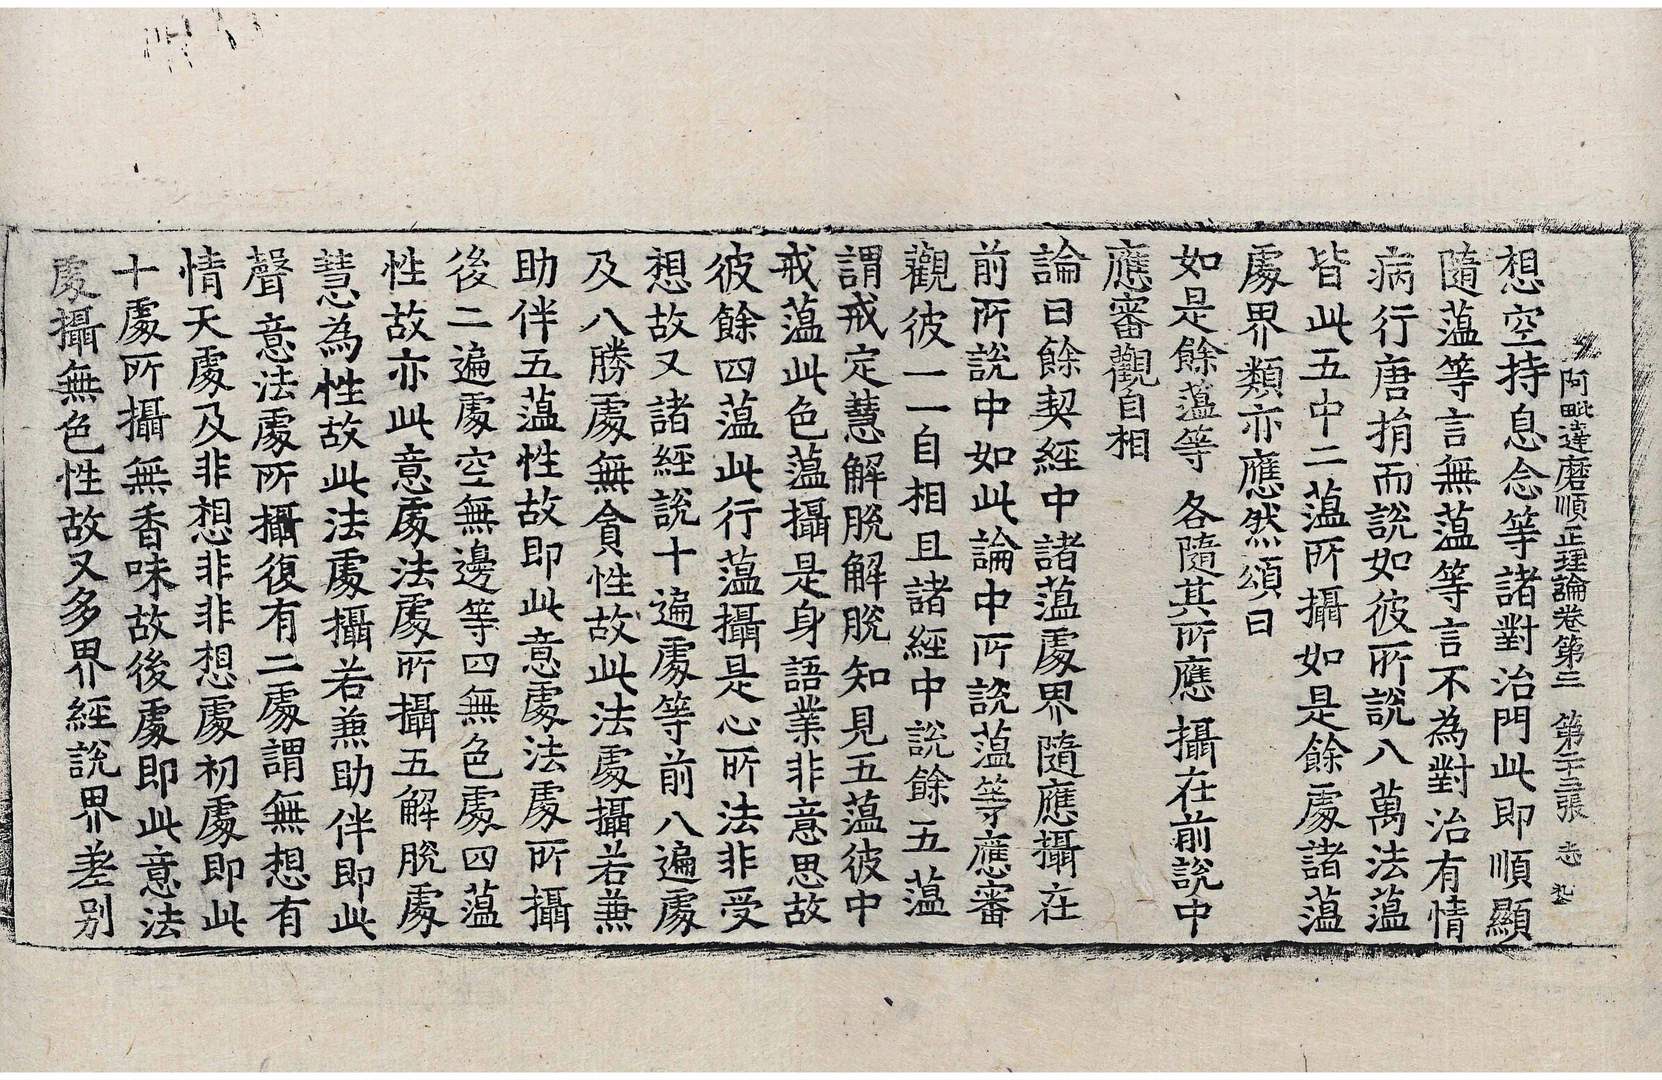 阿毗達磨順正理論卷第三 第二十三張 志
想空持息念等諸對治門此即順顯
隨薀等言無薀等言不為對治有情
病行唐捐而說如彼所說八萬法薀
皆此五中二薀所攝如是餘處諸薀
處界類亦應然頌曰
如是餘薀等 各隨其所應 攝在前說中
應審觀自相
論曰餘契經中諸薀處界隨應攝在
前所說中如此論中所說薀等應審
觀彼一一自相且諸經中說餘五薀
謂戒定慧解脫解脫知見五薀彼中
戒薀此色薀攝是身語業非意思故
彼餘四薀此行薀攝是心所法非受
想故又諸經說十遍處等前八遍處
及八勝處無貪性故此法處攝若兼
助伴五薀性故即此意處法處所攝
後二遍處空無邊等四無色處四薀
性故亦此意處法處所攝五解脫處
慧為性故此法處攝若兼助伴即此
聲意法處所攝復有二處謂無想有
情天處及非想非非想處初處即此
十處所攝無香味故後處即此意法
處攝無色性故又多界經說界差別